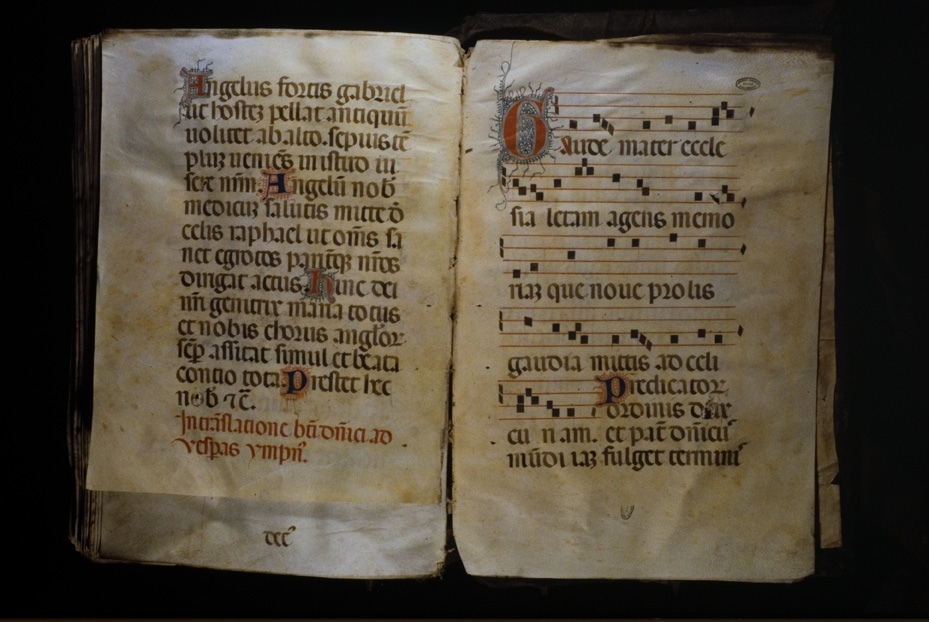 Angelus fortis gabriel
ut hostez pellat antiquũ
uolitet ab alto. sepius tẽ
pluz ueniẽs in istud iu
Angelũ nob̃
medicuz salutis mitte d̃
celis raphael ut om̃s sa
net egrotos pariterq; nr̃os
dirigat actus. hinc dei
nr̃i genitrix maria totus
et nobis chorus anglor
sep̃ assistat simul et beata
contio tota Prestet hec
nob̃ ⁊c̃.
In trãslatione bt̃i dñici ad
vesp̃as ympñ.
ccc
Gaude mater eccle
sia letam agens memo
riaz que noue prolis
gaudia mittis ad celi
Predicator
ordinis dux
cũ nam. et pat̃ dñicũ
mũdi iaz fulget termini